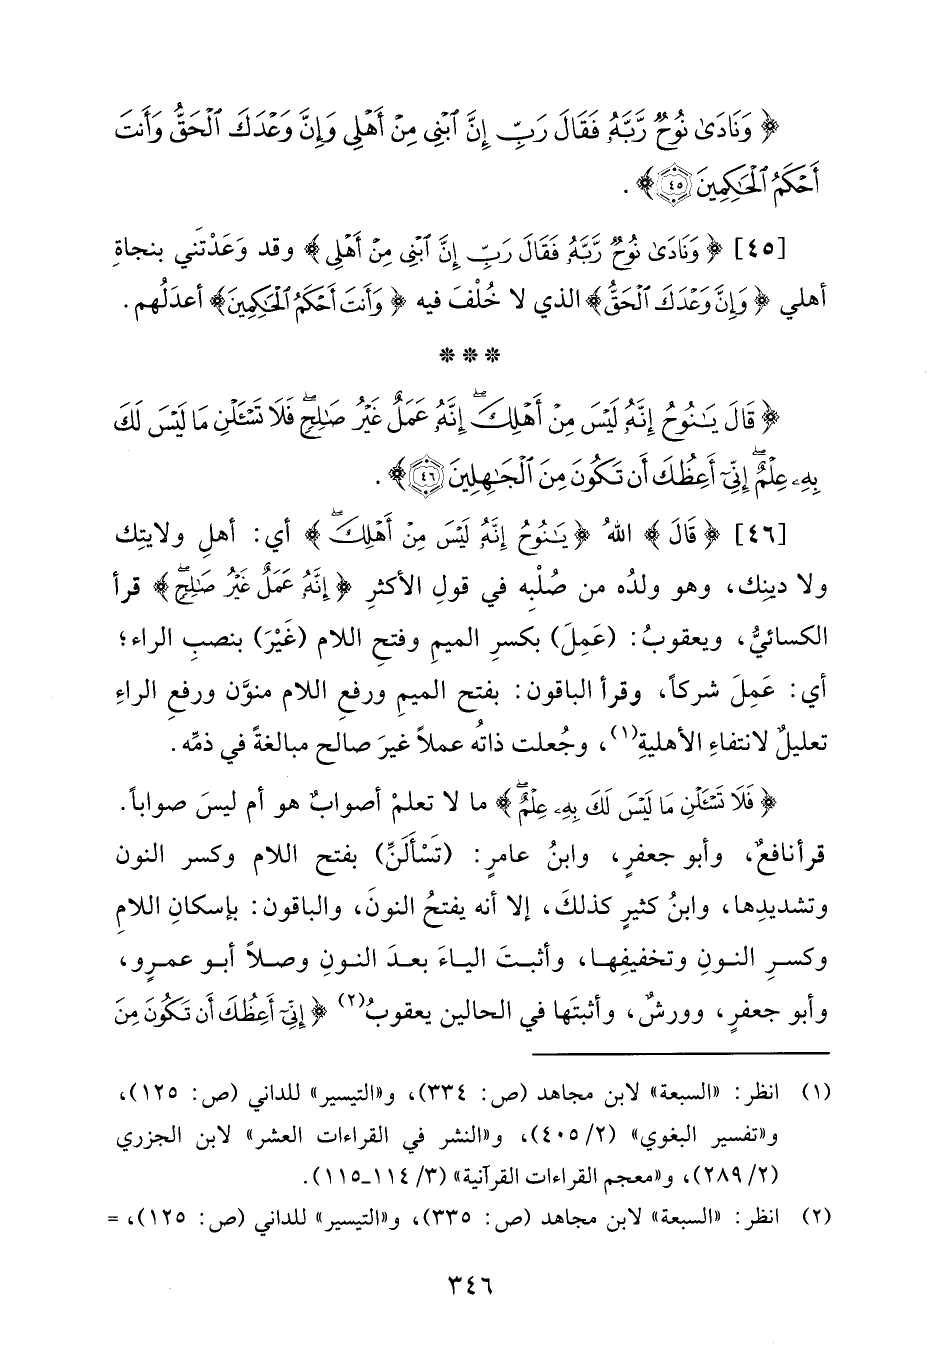 ﴿ وَنَادَىٰ نُوحٌ رَّبَّهُۥ فَقَالَ رَبِّ إِنَّ ٱبْنِى مِنْ أَهْلِى وَإِنَّ وَعْدَكَ ٱلْحَقُّ وَأَنتَ
أَحْكَمُ ٱلْحَٰكِمِينَ ﴿٤٥﴾ ﴾ .
[٤٥] ﴿ وَنَادَىٰ نُوحٌ رَّبَّهُۥ فَقَالَ رَبِّ إِنَّ ٱبْنِى مِنْ أَهْلِى ﴾ وقد وَعَدْتَني بنجاةِ
أهلي ﴿ وَإِنَّ وَعْدَكَ ٱلْحَقُّ ﴾ الذي لا خُلْفَ فيه ﴿ وَأَنتَ أَحْكَمُ ٱلْحَٰكِمِينَ ﴾ أعدَلُهم .
* * *
﴿ قَالَ يَٰنُوحُ إِنَّهُۥ لَيْسَ مِنْ أَهْلِكَ ۖ إِنَّهُۥ عَمَلٌ غَيْرُ صَٰلِحٍ ۖ فَلَا تَسْـَٔلْنِ مَا لَيْسَ لَكَ
بِهِۦ عِلْمٌ ۖ إِنِّىٓ أَعِظُكَ أَن تَكُونَ مِنَ ٱلْجَٰهِلِينَ ﴿٤٦﴾ ﴾ .
[٤٦] ﴿ قَالَ ﴾ اللهُ ﴿ يَٰنُوحُ إِنَّهُۥ لَيْسَ مِنْ أَهْلِكَ ۖ ﴾ أي: أهلِ ولايتِك
ولا دينِك، وهو ولدُه من صُلْبِه في قولِ الأكثرِ ﴿ إِنَّهُۥ عَمَلٌ غَيْرُ صَٰلِحٍ ۖ ﴾ قرأ
الكسائيُّ، ويعقوبُ: (عَمِلَ) بكسرِ الميمِ وفتحِ اللام (غَيْرَ) بنصبِ الراء؛
أي: عَمِلَ شركاً، وقرأ الباقون: بفتح الميمِ ورفع اللام منوَّن ورفعِ الراءِ
تعليلٌ لانتفاءِ الأهليةِ(١)، وجُعلت ذاتُه عملاً غيرَ صالح مبالغةً في ذمِّه .
﴿ فَلَا تَسْـَٔلْنِ مَا لَيْسَ لَكَ بِهِۦ عِلْمٌ ۖ ﴾ ما لا تعلمْ أصوابٌ هو أم ليسَ صواباً .
قرأ نافعٌ، وأبو جعفرٍ، وابنُ عامرٍ: (تَسْأَلَنِّ) بفتح اللام وكسر النون
وتشديدِها، وابنُ كثيرٍ كذلكَ، إلا أنه يفتحُ النونَ، والباقون: بإسكانِ اللامِ
وكسرِ النونِ وتخفيفِها، وأثبتَ الياءَ بعدَ النونِ وصلاً أبو عمرٍو،
وأبو جعفرٍ، وورشٌ، وأثبتَها في الحالين يعقوبُ(٢) ﴿ إِنِّىٓ أَعِظُكَ أَن تَكُونَ مِنَ
(١) انظر: «السبعة» لابن مجاهد (ص: ٣٣٤)، و«التيسير» للداني (ص: ١٢٥)،
و«تفسير البغوي» (٢/ ٤٠٥)، و«النشر في القراءات العشر» لابن الجزري
(٢/ ٢٨٩)، و«معجم القراءات القرآنية» (٣/ ١١٤-١١٥).
(٢) انظر: «السبعة» لابن مجاهد (ص: ٣٣٥)، و«التيسير» للداني (ص: ١٢٥)، =
٣٤٦